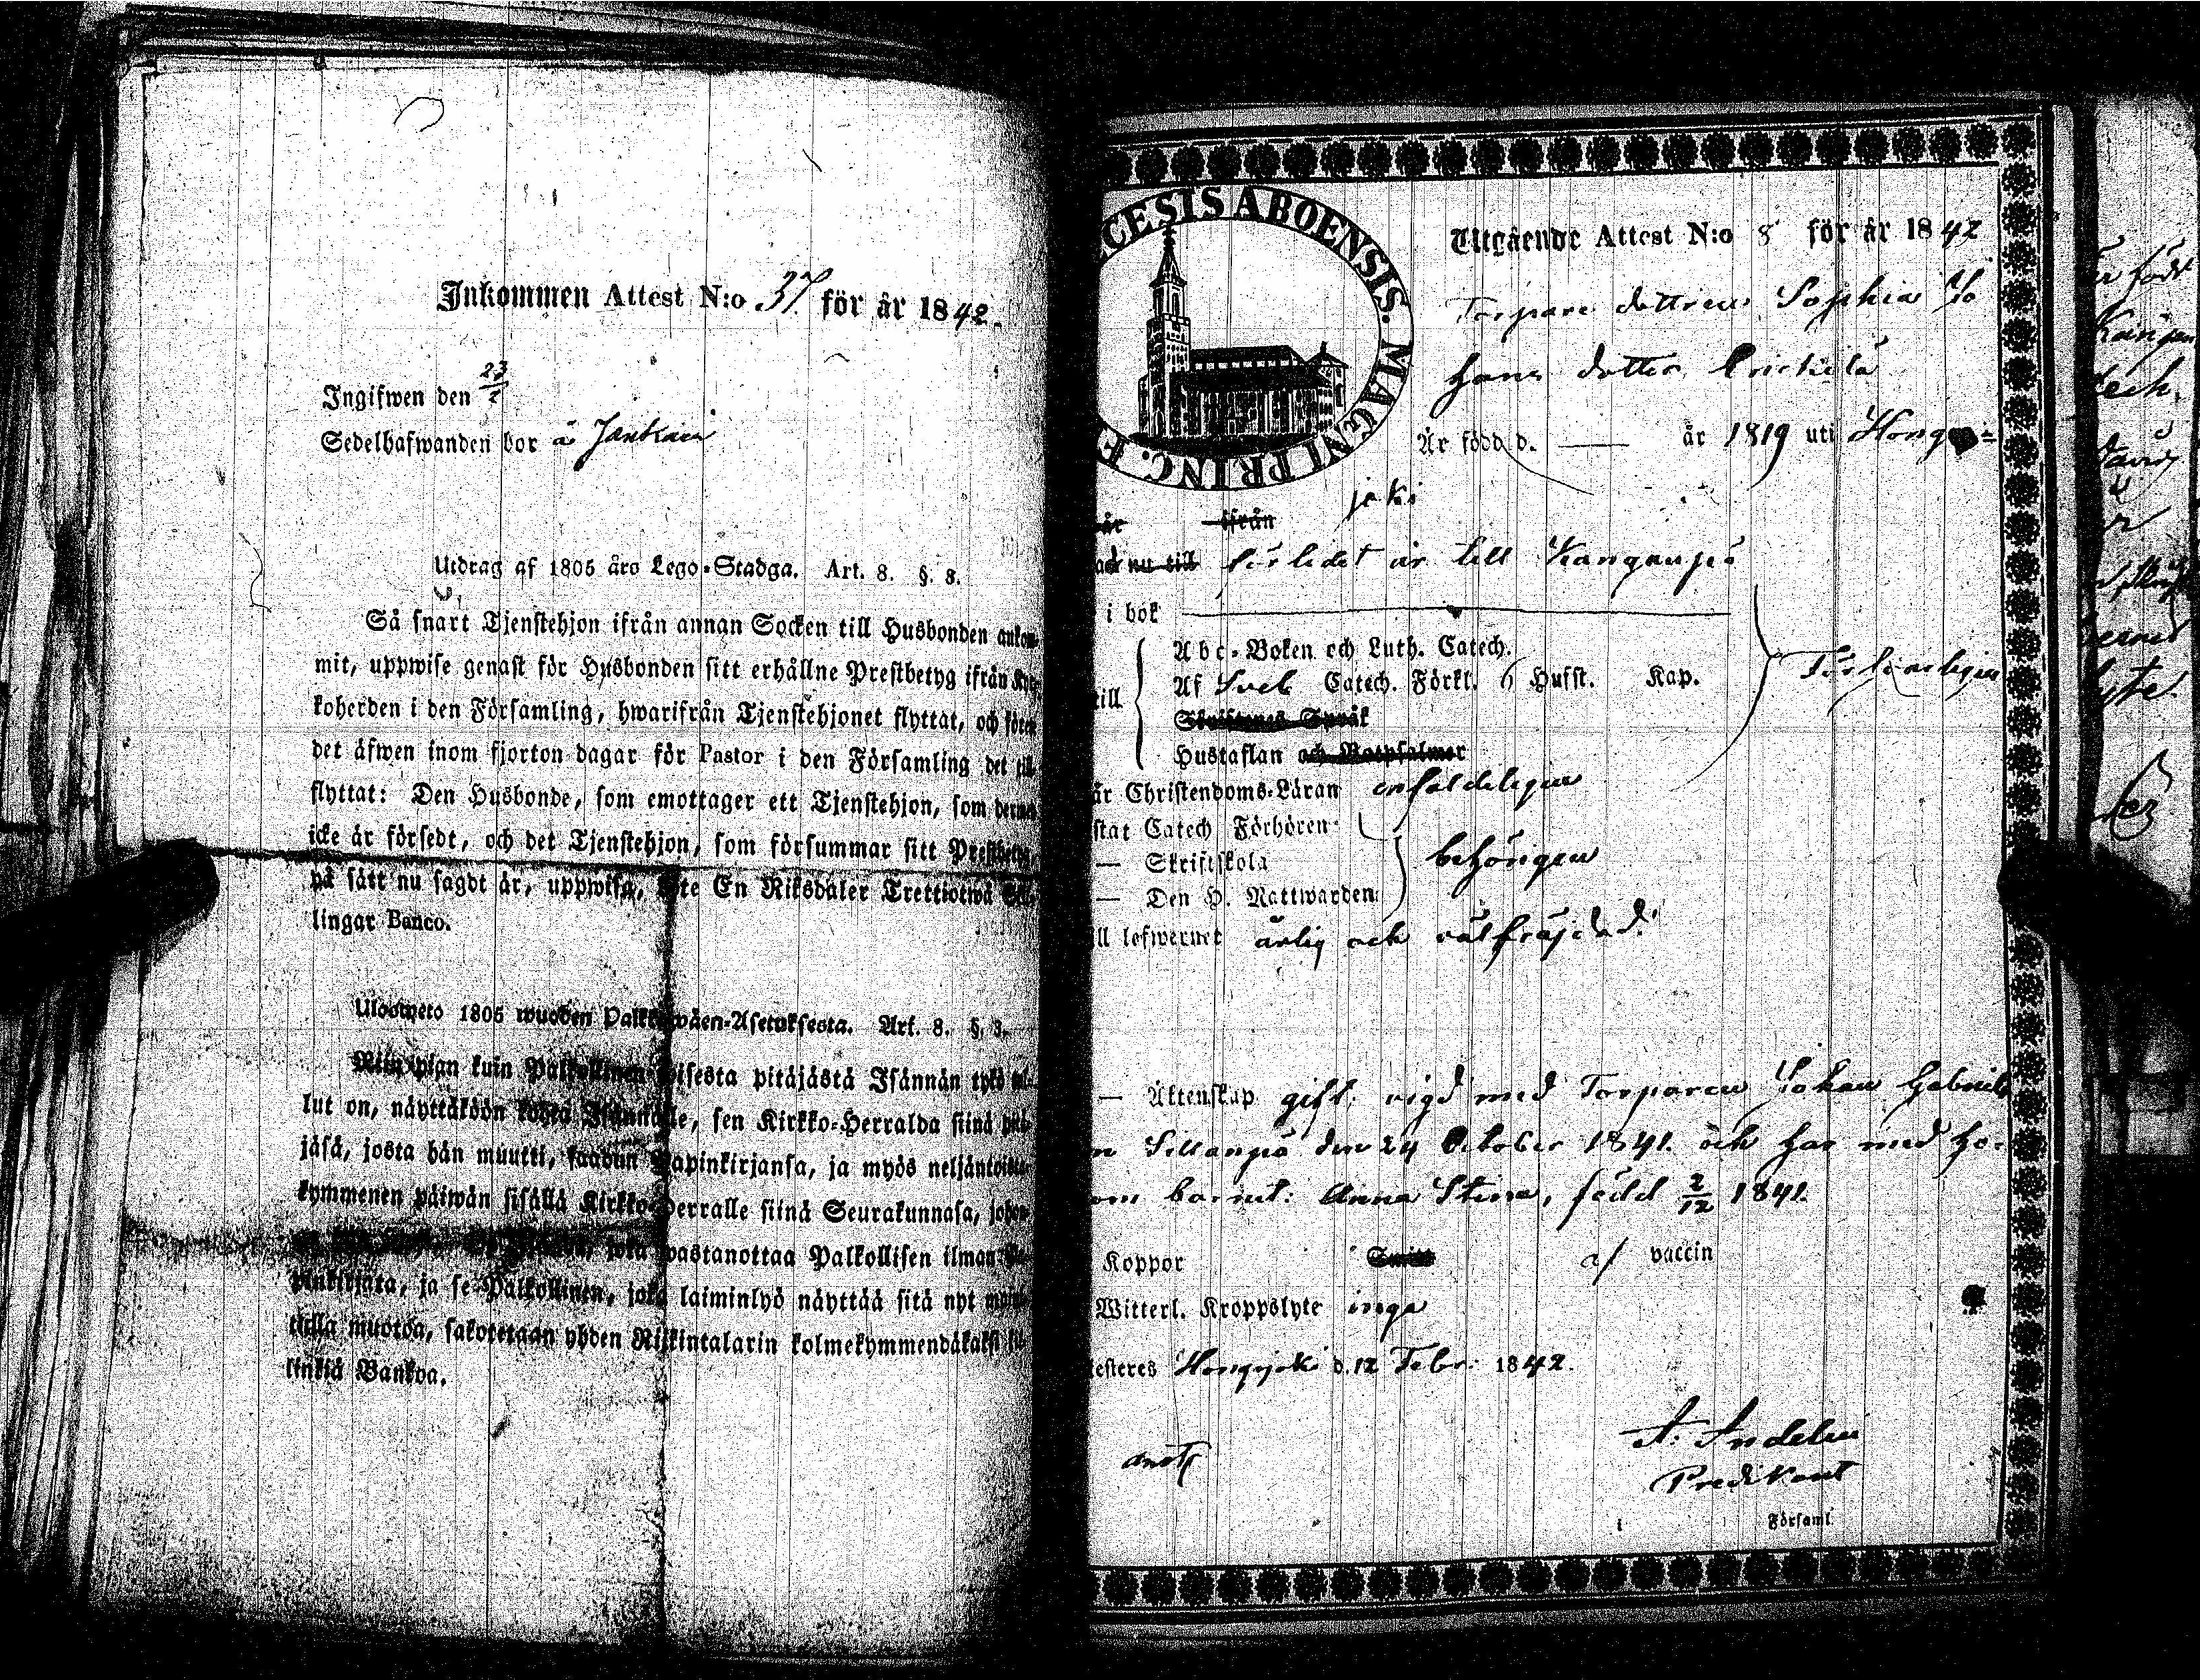 Inkommen Attest N:o 37. för år 1842.
Ingifwen den 23/2
Sedelhafwanden bor å
Utdrag af 1805 års Lego-Stadga. Art. 8. §. 3.
Så snart Tjenstehjon ifrån annan Socken till Husbonden ankom-
mit, uppwise genast för Husbonden sitt erhållne Prestbetyg ifrån Kyr-
koherden i den Församling, hwarifrån Tjenstehjonet flyttat, och förete
det äfwen inom fjorton dagar för Pastor i den Församling det till-
flyttat: Den Husbonde, som emottager ett Tjenstehjon, som dermed
icke är försedt, och det Tjenstehjon, som försummar sitt Prestbetyg,
på sätt nu sagdt är, uppwisa, böte En Riksdaler Trettiotwå Skil-
lingar Banco.
Ulosweto 1805 wuoden Palkkawäen-Asetuksesta. Art. 8. §. 3.
Niin pian kuin Palkollinen toisesta pitäjästä Isännän tykö tul-
lut on, näyttäköön kohta Isännälle, sen Kirkko-Herralda siinä pitä-
jäsä, josta hän muutti, saadun Papinkirjansa, ja myös neljäntoista-
kymmenen päiwän sisällä Kirkko-Herralle siinä Seurakunnasa, johon
joka wastanottaa Palkollisen ilman Pa-
pinkirjata, ja se Palkollinen, joka laiminlyö näyttää sitä nyt mai-
tulla muotoa, sakotetaan yhden Riikintalarin kolmekymmendäkaksi kil-
linkiä Bankoa.
CESIS ABOENSIS. MAGNI PRINC. F
Utgående Attest N:o 8 för år 1842
Torpare dottren Sophia Jo
hans dotter
Är född d. — år 1819 uti Hongo=
joki
år ifrån
nu till förledet år till Kangenpä
i bok
till
Abc-Boken och Luth. Catech.
Af Sveb Catech. Förkl. 6 Hufst. Kap.
Skriftenes Språk
Hustaflan och Botpsalmer
Försvarligen
är Christendoms-Läran enfaldeligen
stat Catech Förhören
— Skriftskola
— Den H. Nattwarden
behörigen
ll lefwernet ärlig och välfräjdad.
— Äktenskap gift, vigd med Torparen Johan Gabriels
n Sillanpä den 24 October 1841. och har med ho-
om barnet: Anna Stina, född 2/12 1841.
Koppor af vaccin
Witterl. Kroppslyte inga
testeres Hongojoki d. 12 Febr: 1842.
A. Andelin
Predikant
i Församl